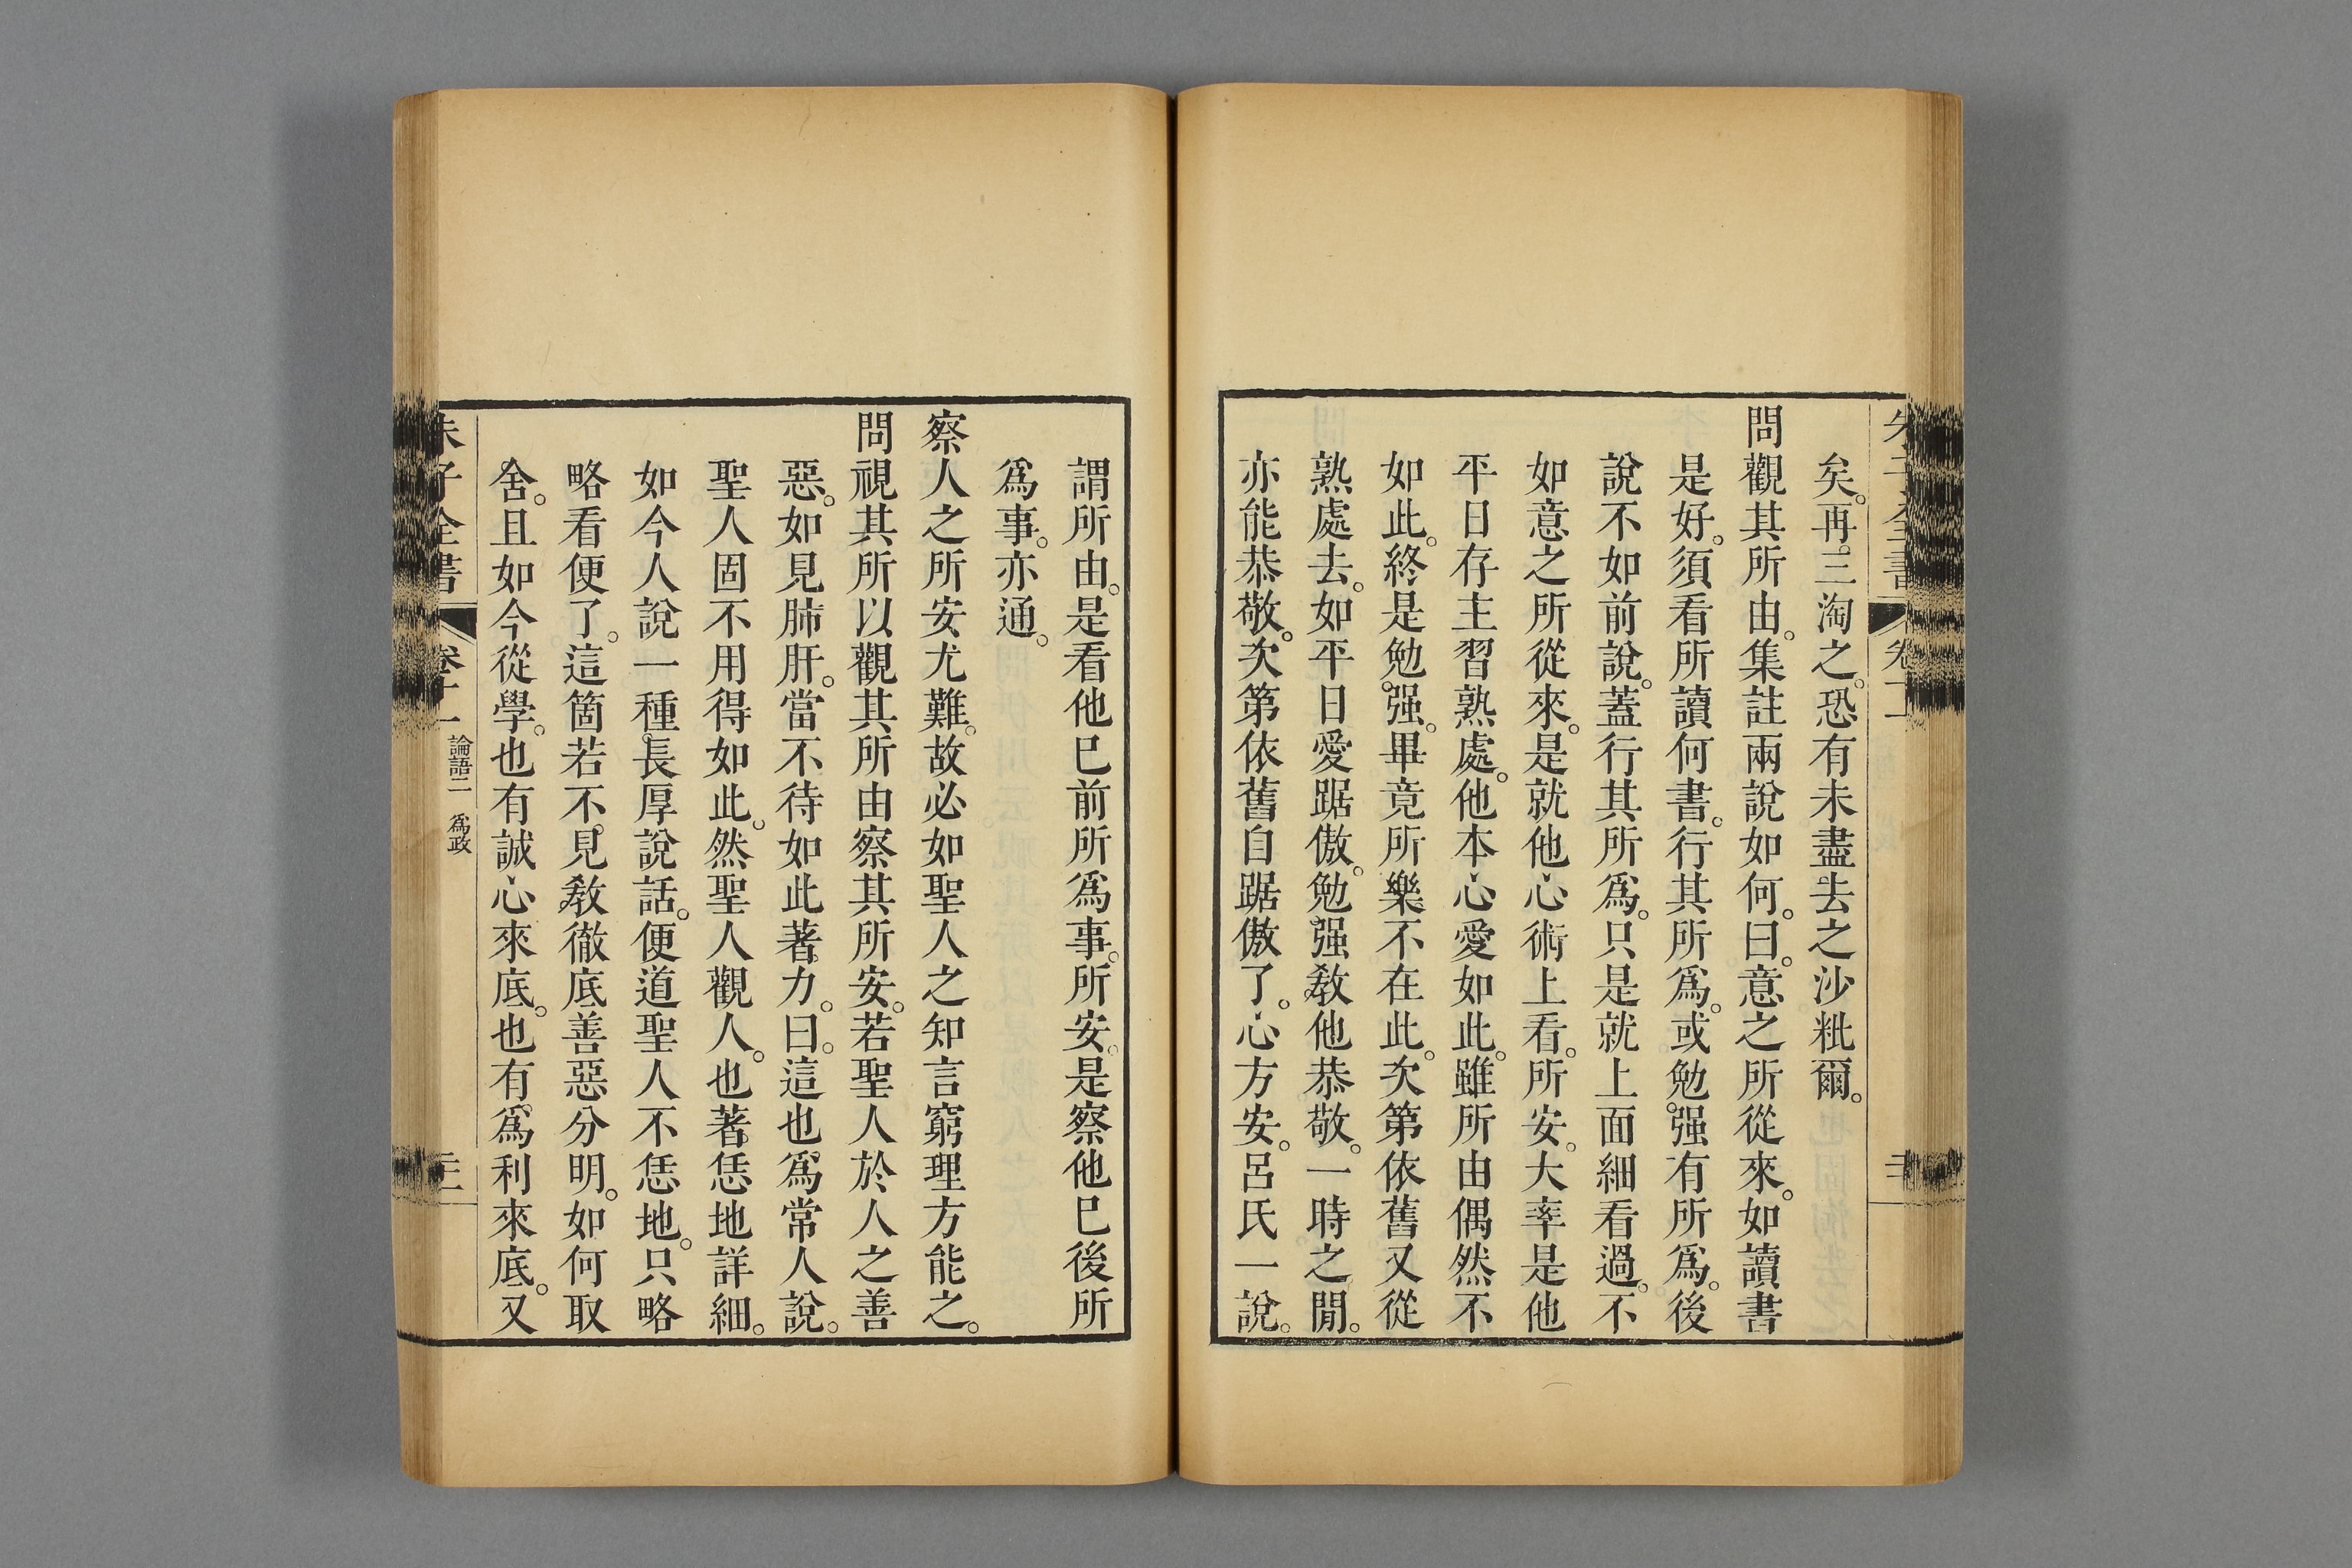 矣。再三淘之。恐有未盡去之沙粃爾。
問觀其所由。集註兩說如何。曰。意之所從來。如讀書
是好。須看所讀何書。行其所爲。或勉強有所爲。後
說不如前說。蓋行其所爲。只是就上面細看過。不
如意之所從來。是就他心術上看。所安。大率是他
平日存主習熟處。他本心愛如此。雖所由偶然不
如此。終是勉强。畢竟所樂不在此。次第依舊又從
熟處去。如平日愛踞傲。勉强敎他恭敬。一時之閒。
亦能恭敬。次第依舊自踞傲了。心方安。呂氏一說。
謂所由。是看他已前所爲事。所安。是察他已後所
爲事。亦通。
察人之所安尤難。故必如聖人之知言窮理方能之。
問視其所以觀其所由察其所安。若聖人於人之善
惡。如見肺肝。當不待如此著力。曰。這也爲常人說。
聖人固不用得如此。然聖人觀人。也著恁地詳細。
如今人說一種長厚說話。便道聖人不恁地。只略
略看便了。這箇若不見敎徹底善惡分明。如何取
舍。且如今從學。也有誠心來底。也有爲利來底。又
朱子全書 卷十一 論語二 爲政